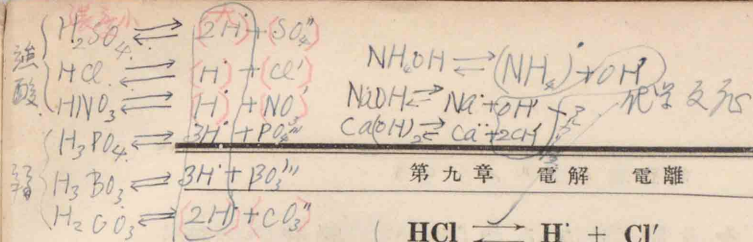 強酸
H₂SO₄ ⇌ (2H˙)+(SO₄'')
HCl ⇌ (H˙)+(Cl')
HNO₃ ⇌ (H˙)+(NO₃')
H₃PO₄ ⇌ 3H˙+PO₄'''
弱
H₃BO₃ ⇌ 3H˙+BO₃'''
H₂CO₃ ⇌ (2H˙)+(CO₃'')
NH₄OH ⇌ (NH₄)˙+OH'
NaOH ⇌ Na˙+OH'
Ca(OH)₂ ⇌ Ca˙˙+2OH'
化学
第九章 電解 電離
HCl ⇌ H˙ + Cl′